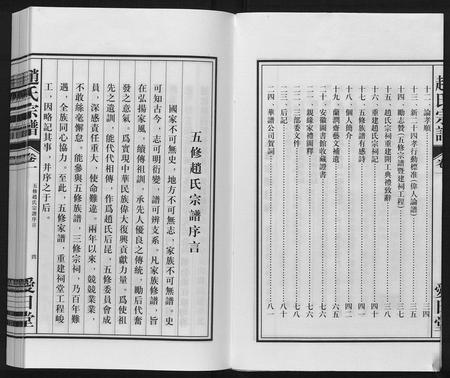 趙氏宗譜
卷
十二、論孝順
十三、新二十四孝行動標准(偉人論語)
十四、勵志贊(五修宗譜暨建祠工程)
十五、趙氏宗祠重建開工典禮致辭
十六、重建趙氏宗祠記
十七、五修族譜有感詩
十八、個人簡介
十九、蘭馨齋藝文補遺
二十、安徽圖書館收藏證書
二一、親緣家禮圖釋
二二、三部委文件
二三、后記
二四、華譜公司賀詞
愛日堂
五修趙氏宗譜序言
國家不可無史，地方不可無志，家族不可無譜。史
可知古今，志可明衍變，譜可辨支系。凡家族修譜，旨
在弘揚家風，續傳祖訓，承先人優良之傳統，勵后代奮
發之意氣。爲實現中華民族偉大復興貢獻力量。爲使祖
先之遺訓，能代代相傳，作爲趙氏后昆，五修委員會成
員，深感責任重大，使命難違。兩年以來，兢兢業業，
不敢絲毫懈怠，能參與五修族譜，三修宗祠，乃百年難
遇，全族同心協力。至此，五修家譜，重建祠堂工程峻
工，因略記其事，并序之于后。
趙氏宗譜
卷一
五修趙氏宗譜序言
四
愛日堂